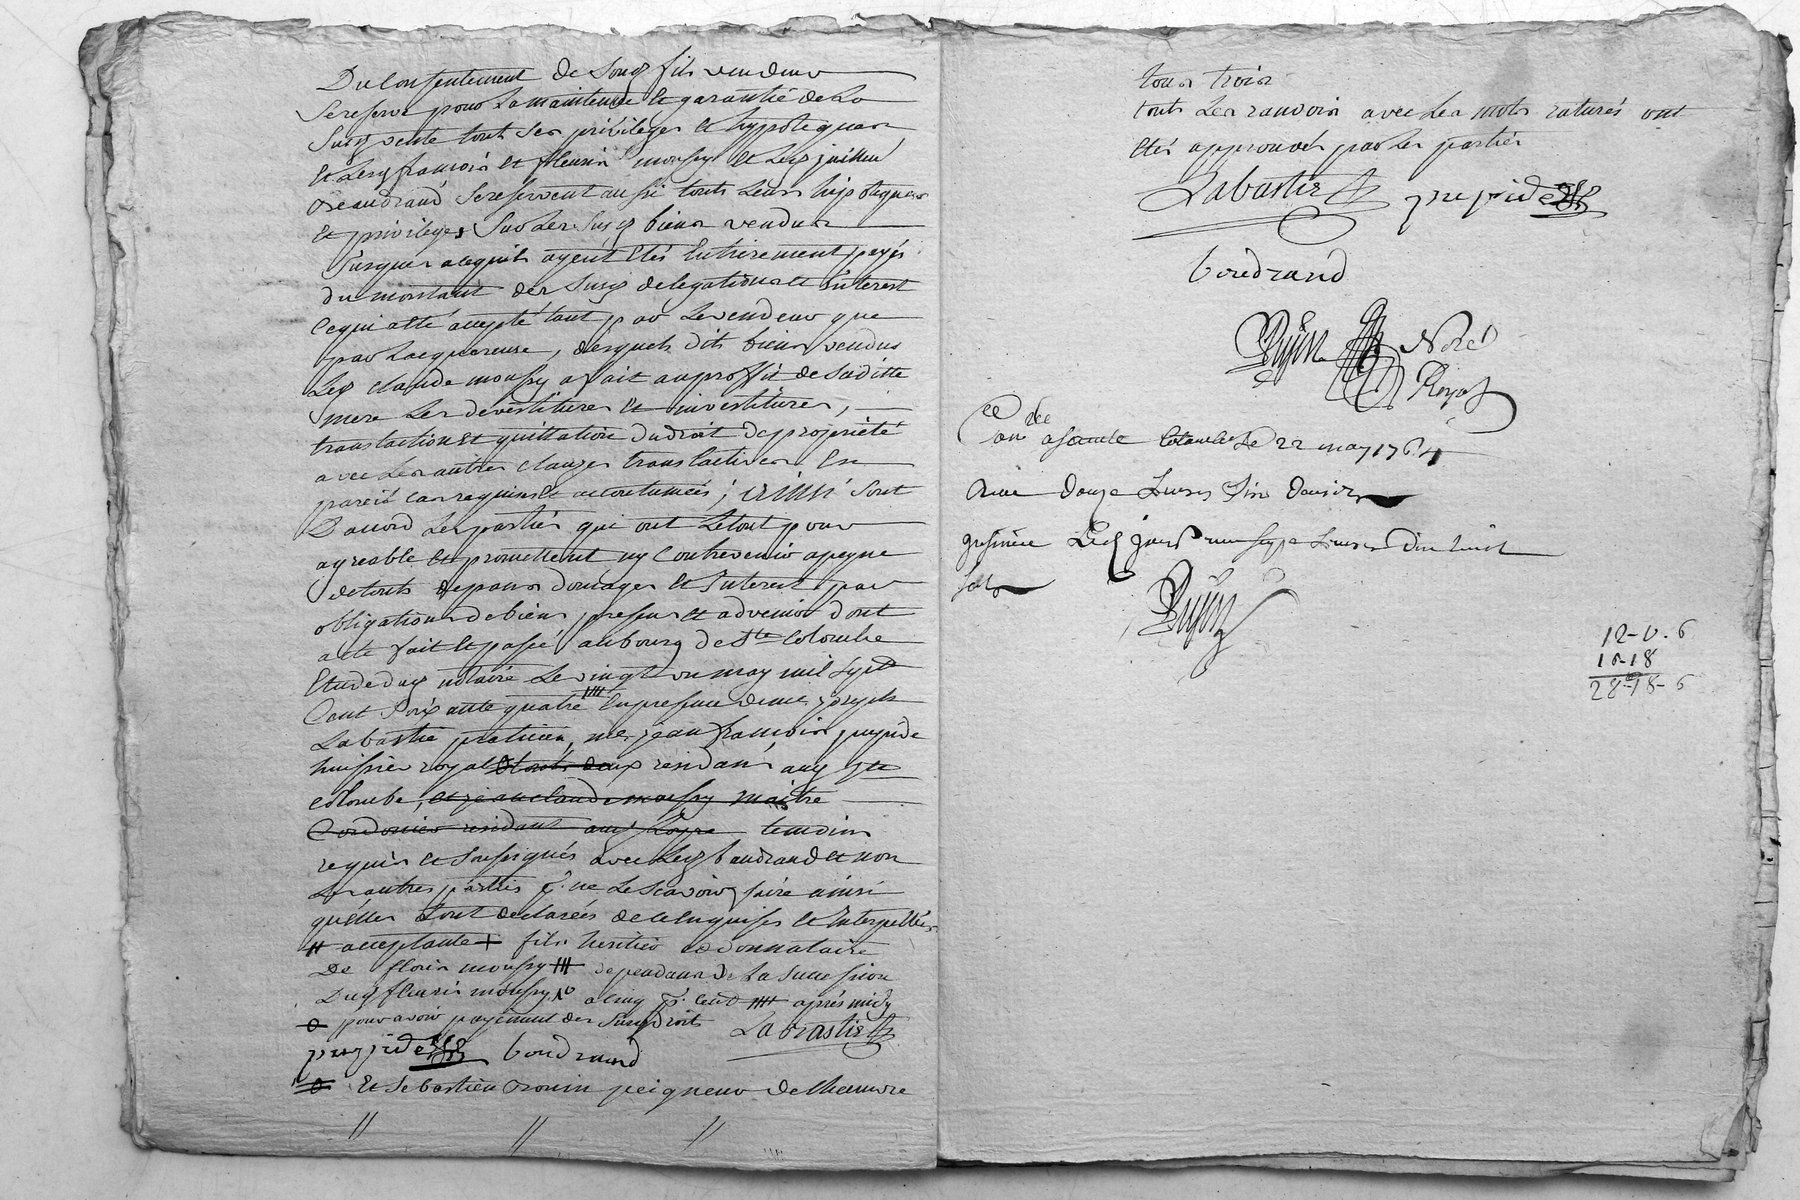 Du Consentement de Sonq fils vendeur
Se reserve pour La maintenue et garantie de La
Susq vente touts Ses privileges et hypoteques
et Lesq francois et fleurie moussy et Leq juillieu
Beaudrand Se reservent aussi touts Leurs hipoteques
et privileges Sur Les Susq biens vendus
Jusques acequils ayent Etés Entierement payés
du montant des Susq delegations et interest
Ce qui a été accepté tant par Le vendeur que
par Lacquereuse, desquels dits biens vendus
Leq claude moussy a fait au proffit de Saditte
mere Les devestitures et investitures,
translation et quittation du droit de proprieté
avec Les autres clauzes translatives En
pareil cas requises et accoutumées; ainsi Sont
D'accord Les parties qui ont Le tout pour
agreable et promettent ny Contrevenir apeyne
de touts depans domages et Interest par
obligations de biens presens et advenir dont
acte fait et passé au bourg de Ste Colombe
Etude duq notaire Le vingt un may mil Sept
Cent Soixante quatre //// En presence de me joseph
Labastie praticien, me jean francois puypide
huissier royal et touts deux residans auq Ste
Colombe, et jean claude moussy maitre
Cordonier residant auq temoins
requis et Soussignés avec Leq baudrand et non
Les autres parties p. ne Le Scavoir faire ainsi
quelles Sont declarées de ce Enquises et Interpellées
# acceptante + fils heritier et donnataire
De floris moussy /// dependans de La Succession
Duq fleurie moussy a cinq p. Cent //// après midy
o pour avoir payement des Susq droits Labbastie
puypide boudrand
o Et Sebastien Peigneur de Chamvre
// // //
tous trois
touts Les ranvois avec Les mots raturés ont
Etés approuvés par Les parties
Labastie puypide
boudrand
Pupin Nore
Royal
Con.lee a Ste Colombe Le 22 may 1764
Reçu douze Livres Six deniers
Insinué Led jour Livres dix huit
Sols
Pupin
12-0.6
16-18
28-18-6